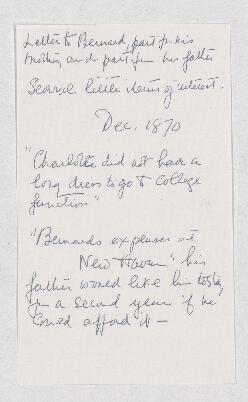 Letter to Bernard, part fr. his
mother and part from his father
Several little items of interest.
Dec. 1870
"Charlotte did not have a
long dress to go to College
function"
"Bernards expenses at
New Haven" his
father would like him to stay
for a second year if he
Could afford it —